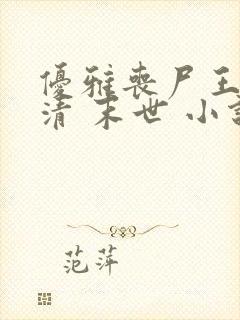 優雅喪尸王
清 末世 小
范萍